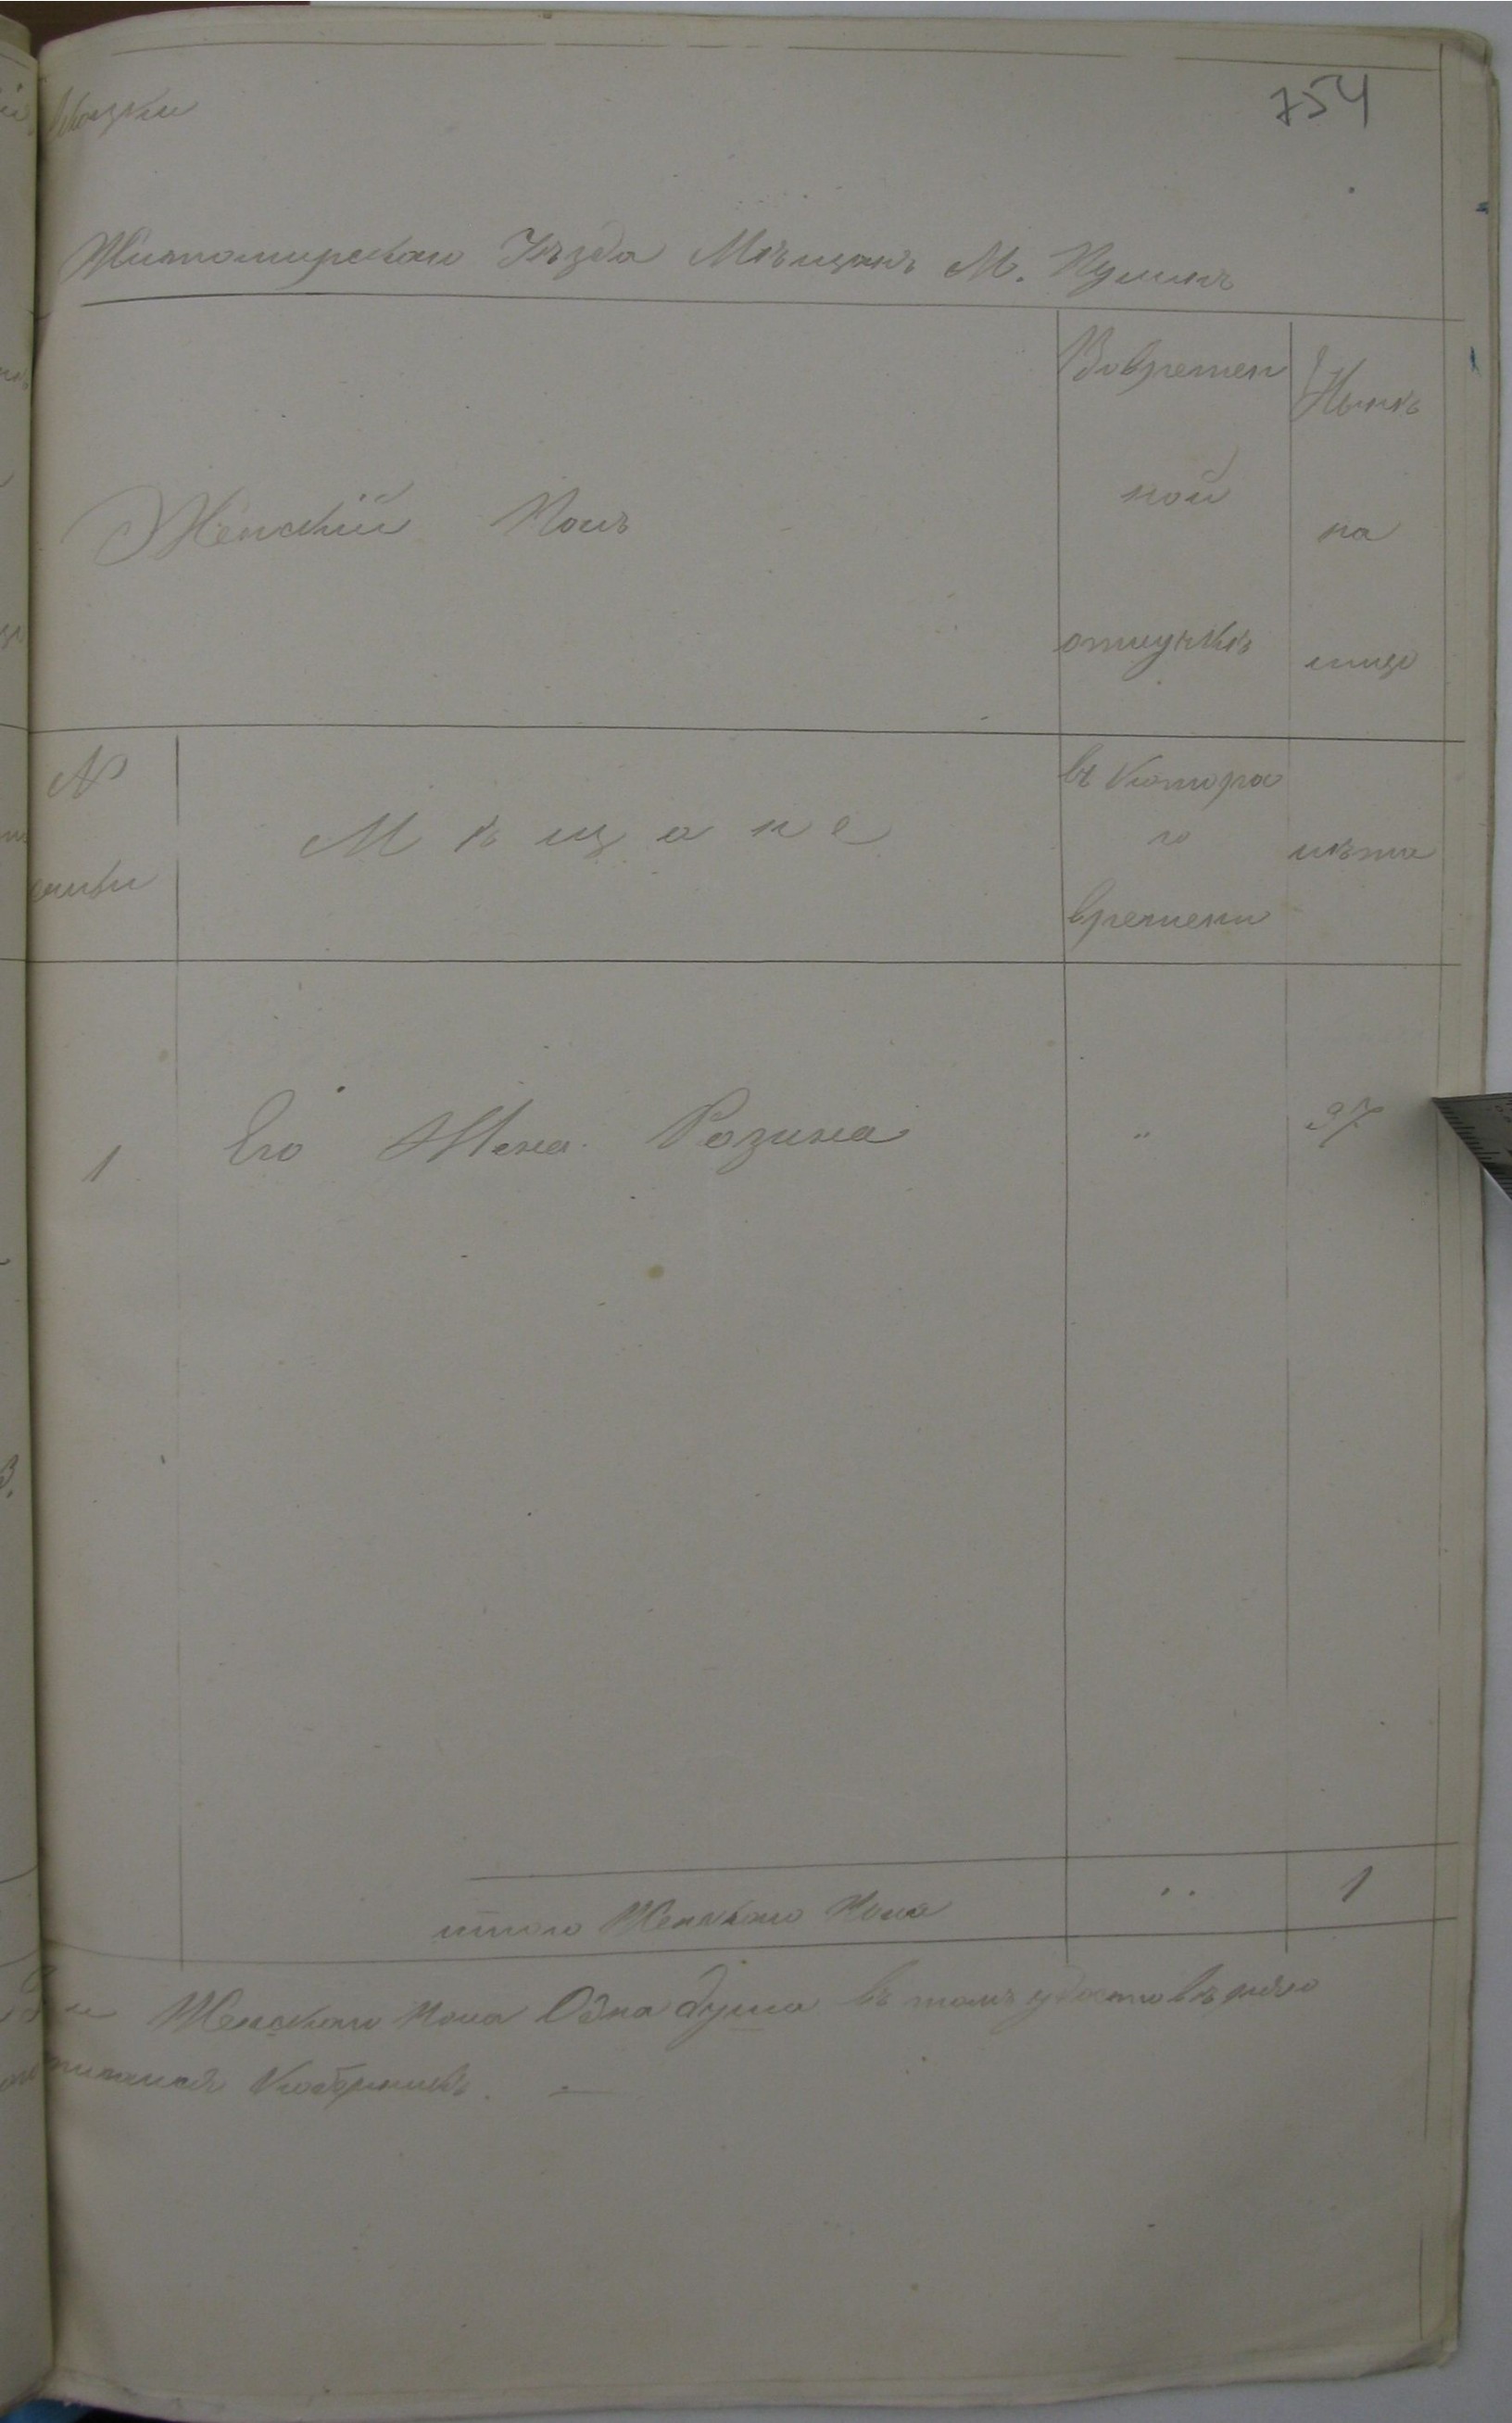 754
Сказки
Житомирскаго Уѣзда Мѣщанъ М. Пулинъ
Женскій Полъ
Вовремен
ной
отлучкѣ
Нынѣ
на
лицо
№
семьи
Мѣщане
въ которо
го
времени
лѣта
1 Его Жена Розина " 37
итого Женскаго Пола " 1
Женскаго Пола Одна душа въ томъ удостовѣряю